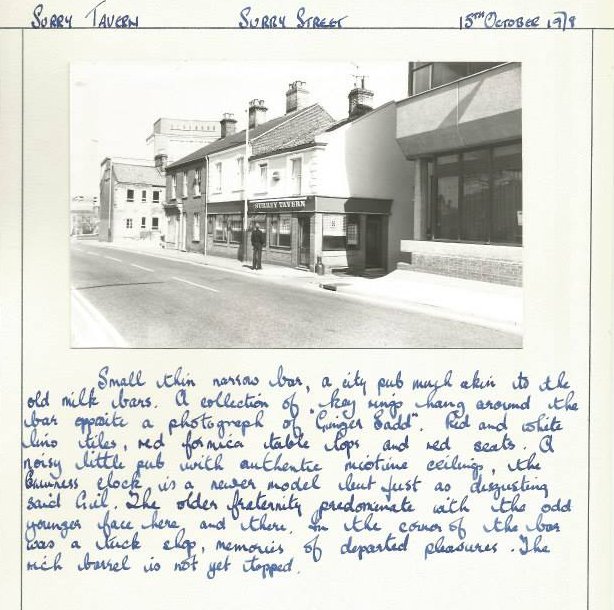 Surry Tavern Surry Street 15TH October 1978
SURREY TAVERN
Small thin narrow bar, a city pub much akin to the
old milk bars. A collection of key rings hang around the
bar opposite a photograph of "Ginger Sadd". Red and white
lino tiles, red formica table tops and red seats. A
noisy little pub with authentic nicotine ceilings, the
Guinness clock is a newer model but just as disgusting
said Gul. The older fraternity predominate with the odd
younger face here and there. In the corner of the bar
was a tuck shop, memories of departed pleasures. The
rich barrel is not yet tapped.